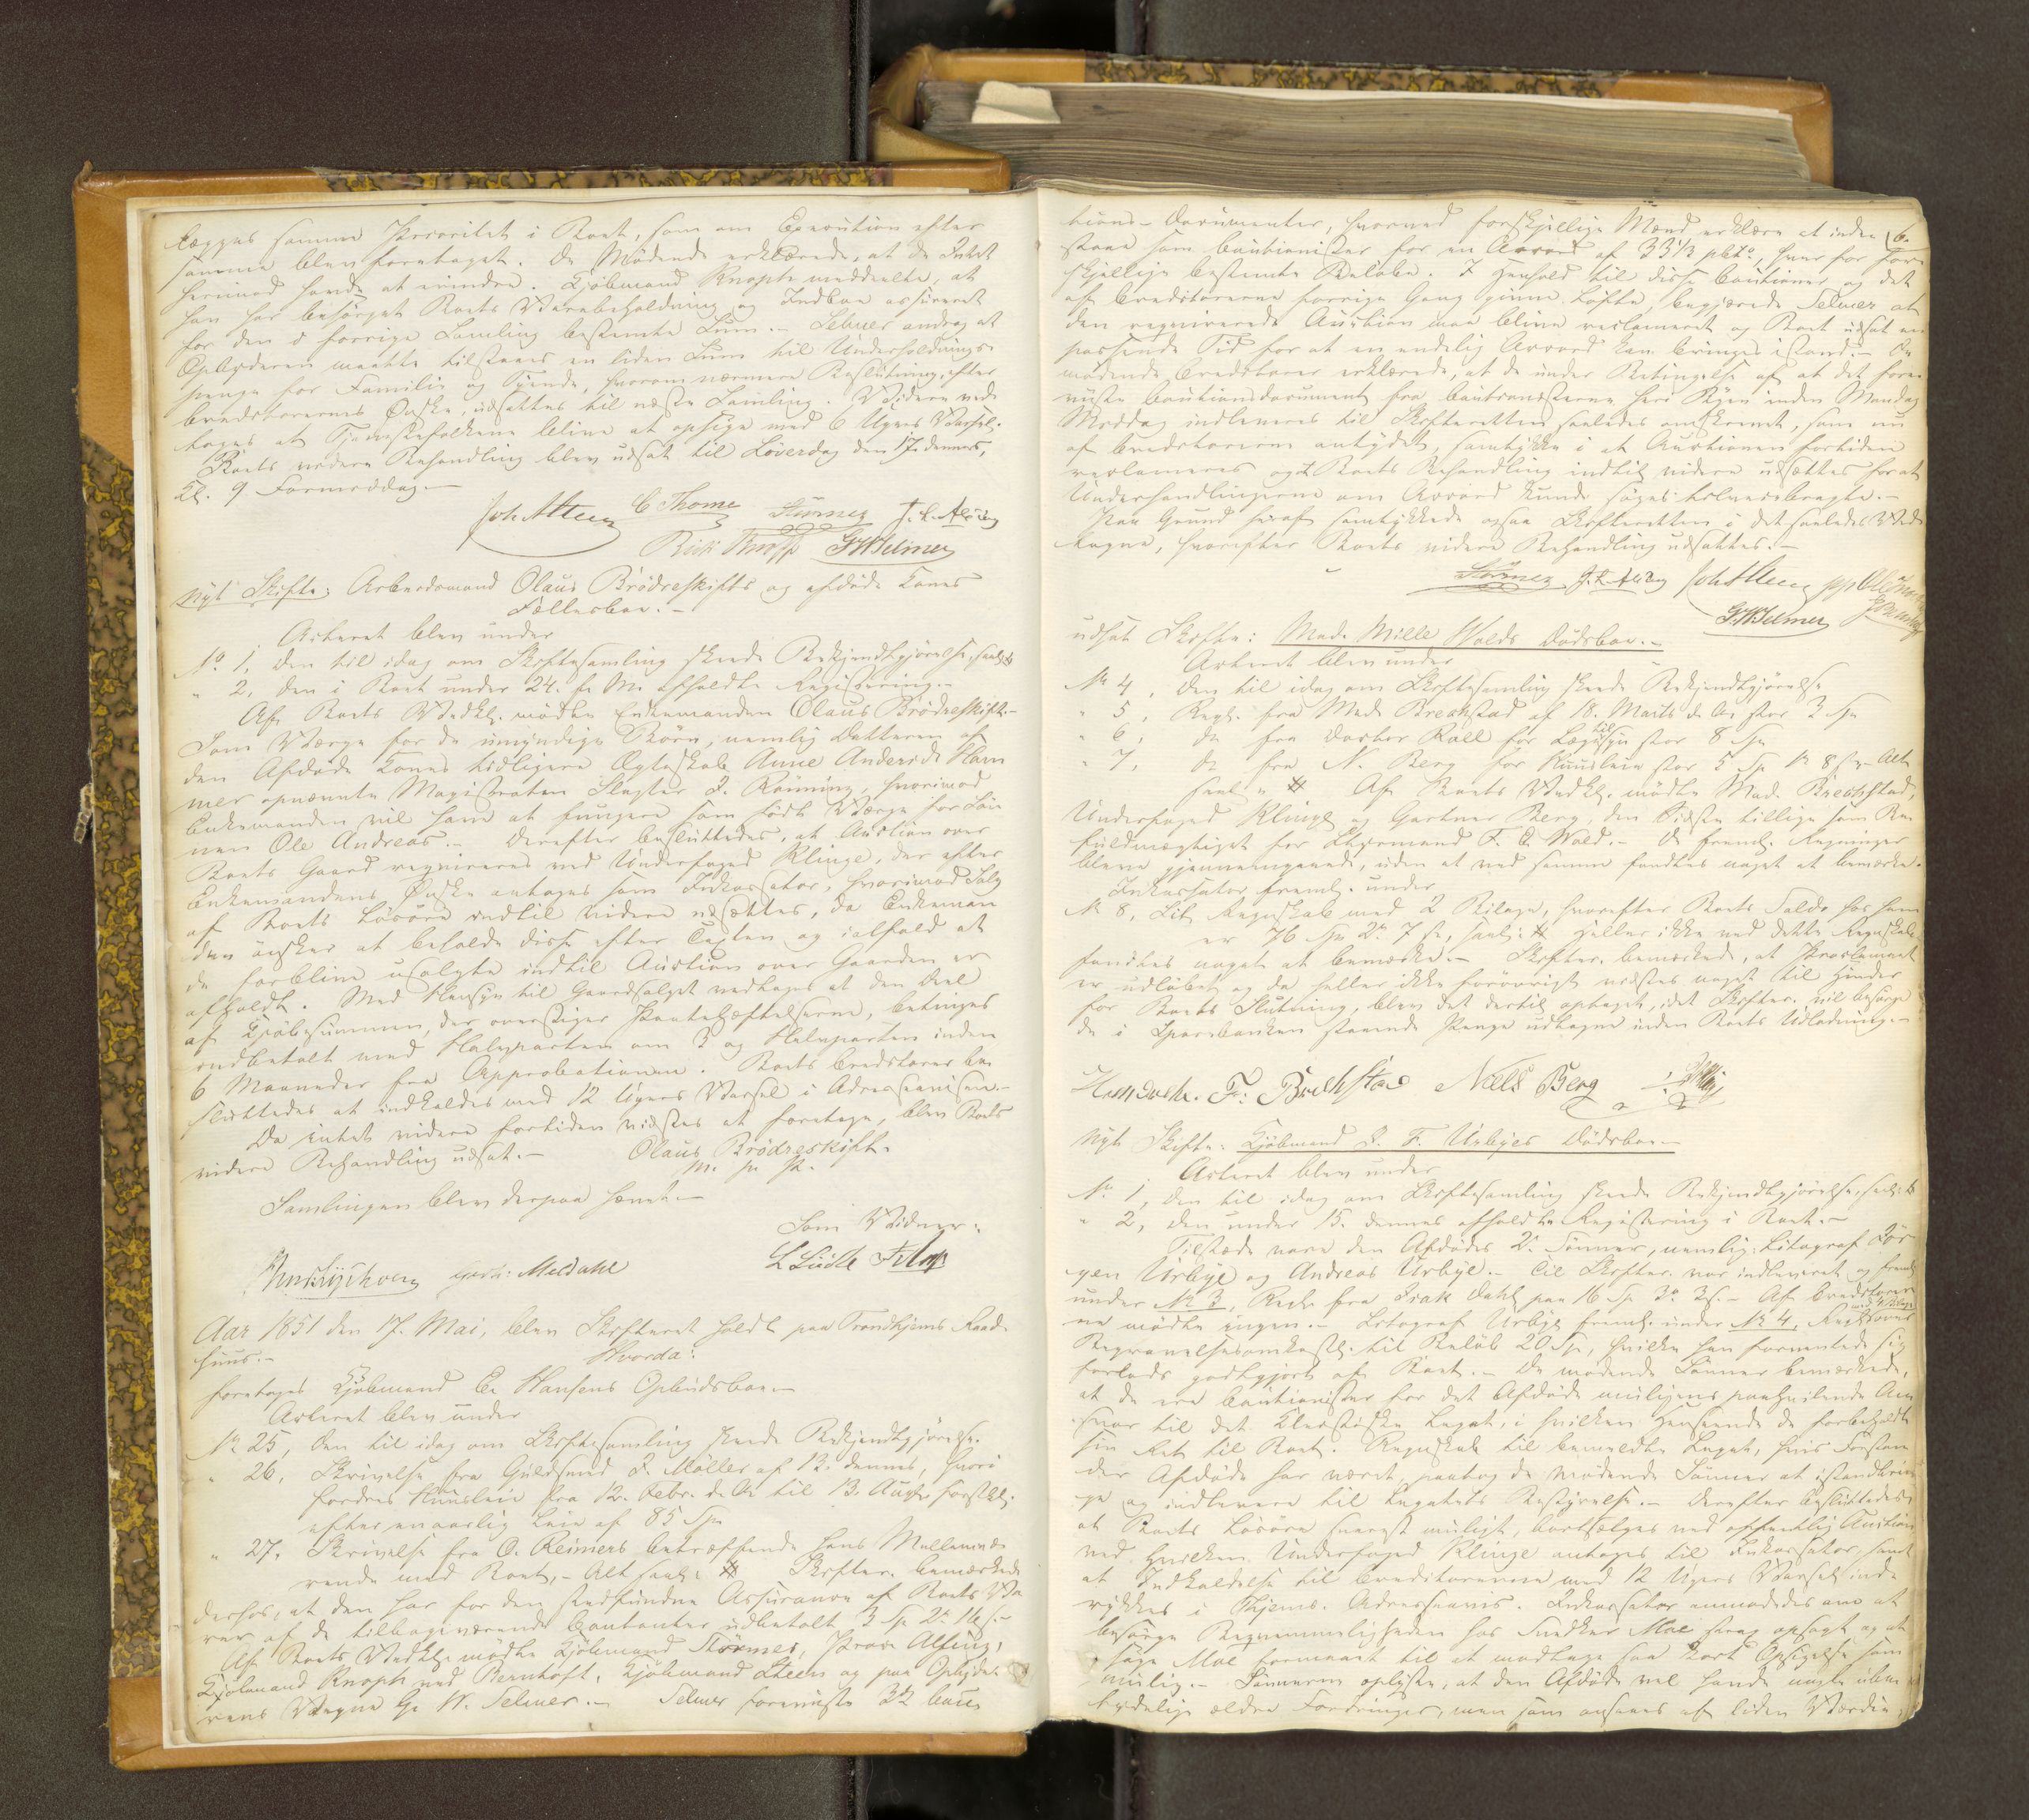 lægges samme Prioritet i Boet, som om Execution efter
samme blev foretaget. De Mødende erklærede, at de Intet
herimod havde at erindre. Kjøbmand Knoph meddeelte, at
han har besørget Boets Varebeholdning og Indboe assureret
for den i forrige Samling bestemte Sum.- Selmer androg at
Opbyderen maatte tilstaaes en liden Sum til Underholdnings-
penge for Familie og Tyende, hvorom nærmere Beslutning, efter
Creditorernes Ønske, udsattes til næste Samling. Videre ved-
toges at Tjenestefolkene blive at opsige med 6 Ugers Varsel.
Boets videre Behandling blev udsat til Løverdag den 17. dennes,
Kl. 9 Formiddag.-
Joh. Steen C Thome Størmer J. L. Alsing
Rich Knoph G W Selmer
Nyt Skifte: Arbeidsmand Olaus Brödreskifts og afdøde Kones
Fællesboe.-
Acteret blev under
No 1, den til idag om Skiftesamling skeede Bekjendtgjørelse,
" 2, den i Boet under 24. f. M. afholdte Registrering.-
Af Boets Vedk. mødte Enkemanden Olaus Brödreskift.-
Som Værge for de umyndige Børn, nemlig Datteren af
den Afdøde Kones tidligere Ægteskab Anne Andersd. Ham
mer opnævnte Magistraten Slagter J. Rönning, hvorimod
Enkemanden vil have at fungere som født Værge for Søn
nen Ole Andreas.- Derefter besluttedes, at Auction over
Boets Gaard requireres ved Underfoged Klinge, der efter
Enkemandens Ønske antages som Inkassator, hvorimod Salg
af Boets Løsøre indtil videre udsættes, da Enkeman
den ønsker at beholde disse efter Taxten og ialfald at
de forblive usolgte indtil Auction over Gaarden er
afholdt. Med Hensyn til Gaardsalget vedtages at den Deel
af Kjøbesummen, der overstiger Pantehæftelserne, betinges
indbetalt med Halvparten om 3 og Halvparten inden
6 Maaneder fra Approbationen. Boets Creditorer be
sluttedes at indkaldes med 12 Ugers Varsel i Adresseavisen.-
Da Intet videre fortiden vidstes at foretage, blev Boets
videre Behandling udsat.- Olaus Brödreskift.
m. p. P.
Samlingen blev derpaa hævet.-
Som Vidner:
Gerh: Meldahl
Aar 1851 den 17. Mai, blev Skifteret holdt paa Trondhjems Raad-
huus.- Hvorda:
foretoges Kjøbmand C. Hansens Opbudsboe.-
Acteret blev under
No 25, den til idag om Skiftesamling skeede Bekjendtgjørelse.
" 26, Skrivelse fra Guldsmed J. Möller af 13. dennes, hvori
fordres Huusleie fra 12. Febr. d. A. til 13. August førstk.
efter en aarlig Leie af 85 Spd.
" 27. Skrivelse fra O. Reimers betræffende hans Mellemvæ-
rende med Boet,- Alt
derhos, at den har for den stedfundne Assurance af Boets Va
rer af de tilbageværende Contanter udbetalt 3 Sp 2 16 s.-
Af Boets Vedk. mødte Kjøbmand Störmer, Procr Alsing,
Kjøbmand Knoph ved Bernhoft, Kjøbmand Steen og paa Opbyde-
rens Vegne G. W. Selmer.- Selmer foreviste 3de Cau
6.
tions-Documenter, hvorved forskjellige Mænd erklære at inde
staae som Cautionister for en Accord af 33 1/3 pCto, hver for for-
skjellige bestemte Beløbe. I Henhold til disse Cautioner og det
af Creditorerne forrige Gang givne Løfte, begjærede Selmer at
den requirerede Auction maa blive reclameret og Boet udsat en
passende Tid for at en endelig Accord kan bringes istand.- De
mødende Creditorer erklærede, at de under Betingelse af at det fore-
viste Cautionsdocument fra Cautionisterne her i Byen inden Mandag
Middag indleveres til Skifteretten saaledes omskrevet, som nu
af Creditorerne antydet, samtykke i at Auctionen fortiden
reclameres og at Boets Behandling indtil videre udsættes for at
Underhandlingerne om Accord kunde søges tilveiebragte.-
Paa Grund heraf samtykkede ogsaa Skifteretten i det saaledes Ved-
tagne, hvorefter Boets videre Behandling udsattes.-
Størmer J. L. Alsing Joh Steen
G. W Selmer
udsat Skifte: Mad. Mille Wolds Dødsboe.-
Acteret blev under
No 4, den til idag om Skiftesamling skeede Bekjendtgjørelse
" 5, Regn. fra Mad. Brechstad af 18. Marts d. A. stor 3 Spd
" 6, do fra Doctor Roll for Lægetilsyn stor 8 Spd
" 7, do fra N. Berg for Huusleie stor 5 Sp
Af Boets Vedk. mødte Mad. Brechstad,
Underfoged Klinge og Gartner Berg, den Sidste tillige som Be-
fuldmægtiget for Styrmand F. C. Wold.- De freml. Regninger
bleve gjennemgaaede, uden at ved samme fandtes noget at bemærke.
Inkassator freml. under
No 8, Sit Regnskab med 2 Bilage, hvorefter Boets Saldo hos ham
er 76 Spd 2 7 s,
fandtes noget at bemærke.- Skifter. bemærkede, at Proclamaet
er udløbet og da heller ikke forøvrigt vidstes noget til Hinder
for Boets Slutning, blev det dertil optaget, idet Skifter. vil besørge
de i Sparebanken staaende Penge udtagne inden Boets Udlodning.-
F: Brechstad Niels Berg
Nyt Skifte: Kjöbmand J. F. Urbyes Dødsboe.-
Acteret blev under
No 1, den til idag om Skiftesamling skeede Bekjendtgjørelse,
" 2, den under 15. dennes afholdte Registrering i Boet.-
Tilstede vare den Afdødes 2 Sønner, nemlig: Litograf Jör
gen Urbye og Andreas Urbye.- Til Skifter. var indleveret og freml.
under No 3, Regn. fra Isak Dahl paa 16 Sp 3 3 s.- Af Creditorer
ne mødte ingen.- Litograf Urbye freml. under No 4,
Begravelsesomkostn. til Beløb 20 Sp, hvilke han formeentede sig
forlods godtgjort af Boet.- De mødende Sønner bemærkede,
at de ere Cautionister for det Afdøde muligens paahvilende An
svar til det Legat, i hvilken Henseende de forbeholdt
sin Ret til Boet. Regnskab til bemeldte Legat, hvis Forstan
der Afdøde har været, paatog de mødende Sønner at istandbrin
ge og indlevere til Legatets Bestyrelse.- Derefter besluttedes
at Boets Løsøre snarest muligt, bortsælges ved offentlig Auction
ved hvilken Underfoged Klinge antages til Inkassator, samt
at Indkaldelse til Creditorerne med 12 Ugers Varsel ind-
rykkes i Thjems. Adresseavis. Inkassator anmodedes om at
besørge Beqvemmeligheden hos Snedker Moe strax opsagt og at
søge Moe formaaet til at modtage saa kort Opsigelse som
mulig.- Sønnerne oplyste, at den Afdøde vel havde nogle ube
tydelige ældre Fordringer, men som ansaaes af liden Værdie,